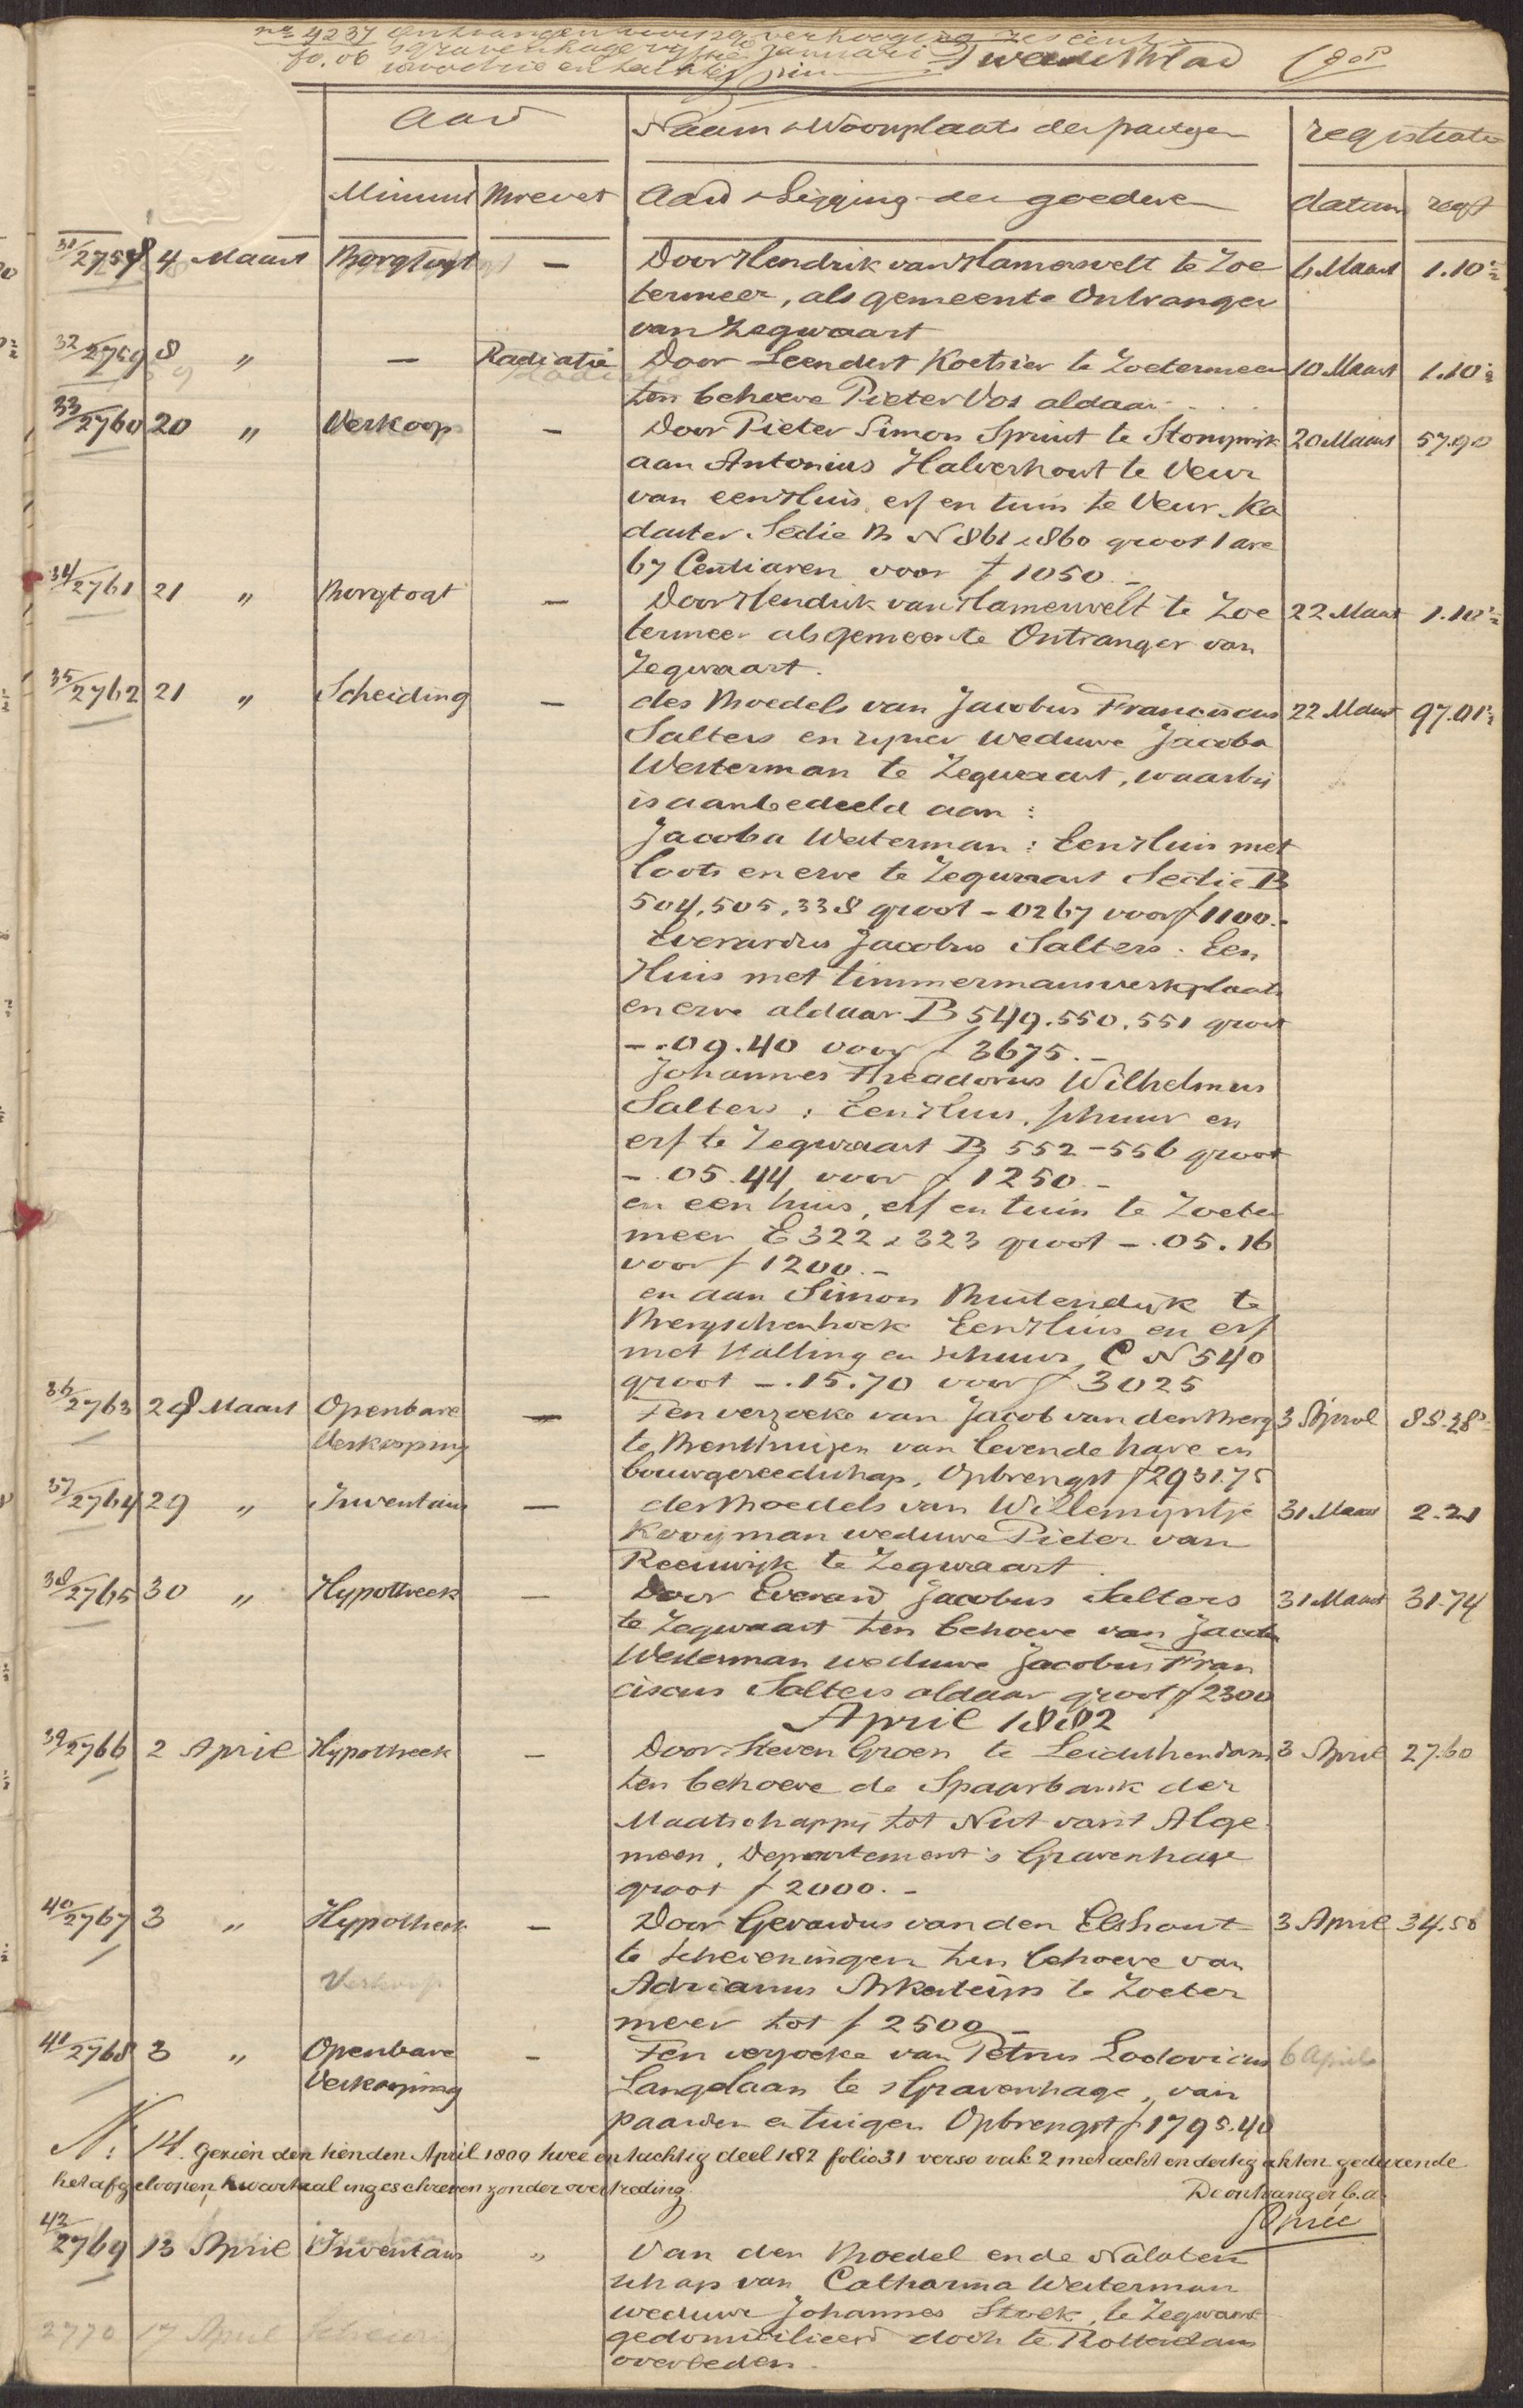 nr 4237 Ontvangen voor verhooging zes cent
f0,06 sGravenhage vyftien Januari 18
Tweede blad
Aard
Naam & Woonplaats der partyen
registratie
Minuut
Brevet
Aard & Ligging der goederen
datum
regt
31/2758 4 Maart Borgtogt — Door Hendrik van Hamersvelt te Zoe 6 Maart 1.10½
termeer, als gemeente Ontvanger
van Zegwaart
32/2759 8 " — Radiatie Door Leendert Koetsier te Zoetermeer 10 Maart 1.10½
ten behoeve Pieter Vos aldaar
33/2760 20 " Verkoop — Door Pieter Simon Spruit te Stompwijk 20 Maart 57.90
aan Antonius Halverhout te Veur
van een Huis, erf en tuin te Veur Ka
daster Sectie B N 861 & 860 groot 1 are
67 Centiaren voor f 1050.-
34/2761 21 " Borgtogt — Door Hendrik van Hamersvelt te Zoe 22 Maart 1.10½
termeer als gemeente Ontvanger van
Zegwaart.
35/2762 21 " Scheiding — des Boedels van Jacobus Franciscus 22 Maart 97.01½
Salters en zyner weduwe Jacoba
Westerman te Zegwaart, waarbij
is aanbedeeld aan :
Jacoba Westerman : Een Huis met
loots en erve te Zegwaart Sectie B
504, 505, 338 groot - 0267 voor f 1100.-
Everardus Jacobus Salters : Een
Huis met timmermanswerkplaats
en erve aldaar B 549. 550. 551 groot
-.09.40 voor f 3675.-
Johannes Theodorus Wilhelmus
Salters : Een Huis, schuur en
erf te Zegwaart B 552-556 groot
-.05.44 voor f 1250.-
en een huis, erf en tuin te Zoeter
meer E 322 & 323 groot -.05.16
voor f 1200.-
en aan Simon Buitendijk te
Bergschenhoek Een Huis en erf
met stalling en schuur C N 540
groot -.15.70 voor f 3025
36/2763 28 Maart Openbare — Ten verzoeke van Jacob van den Berg 3 April 88.38½
Verkooping te Benthuizen van levende have en
bouwgereedschap, Opbrengst f 2931.75
37/2764 29 " Inventaris — des Boedels van Willemijntje 31 Maart 2.21
Kooijman weduwe Pieter van
Reeuwijk te Zegwaart.
38/2765 30 " Hypotheek — Door Everard Jacobus Salters 31 Maart 31.74
te Zegwaart ten behoeve van Jacoba
Westerman weduwe Jacobus Fran
ciscus Salters aldaar groot f 2300
April 1882
39/2766 2 April Hypotheek — Door Steven Groen te Leidschendam 3 April 27.60
ten behoeve de Spaarbank der
Maatschappij tot Nut van't Alge
meen, Departement s Gravenhage
groot f 2000.-
40/2767 3 " Hypotheek — Door Gerardus van den Elshout 3 April 34.50
te Scheveningen ten behoeve van
Verkoop Adrianus te Zoeter
meer tot f 2500.-
41/2768 3 " Openbare — Ten verzoeke van Petrus Lodovicus 6 April
Verkooping Langelaan te s Gravenhage, van
paarden en tuigen Opbrengst f 1795.40
N: 14. Gezien den tienden April 1800 twee en tachtig deel 182 folio 31 verso vak 2 met acht en dertig akten gedurende
het afgeloopen kwartaal ingeschreven zonder overtreding.
De ontvanger b.a.
42/2769 13 April Inventaris " Van den Boedel en de Nalaten
schap van Catharina Westerman
weduwe Johannes Stolk, te Zegwaart
2770 17 April gedomicilieerd doch te Rotterdam
overleden.